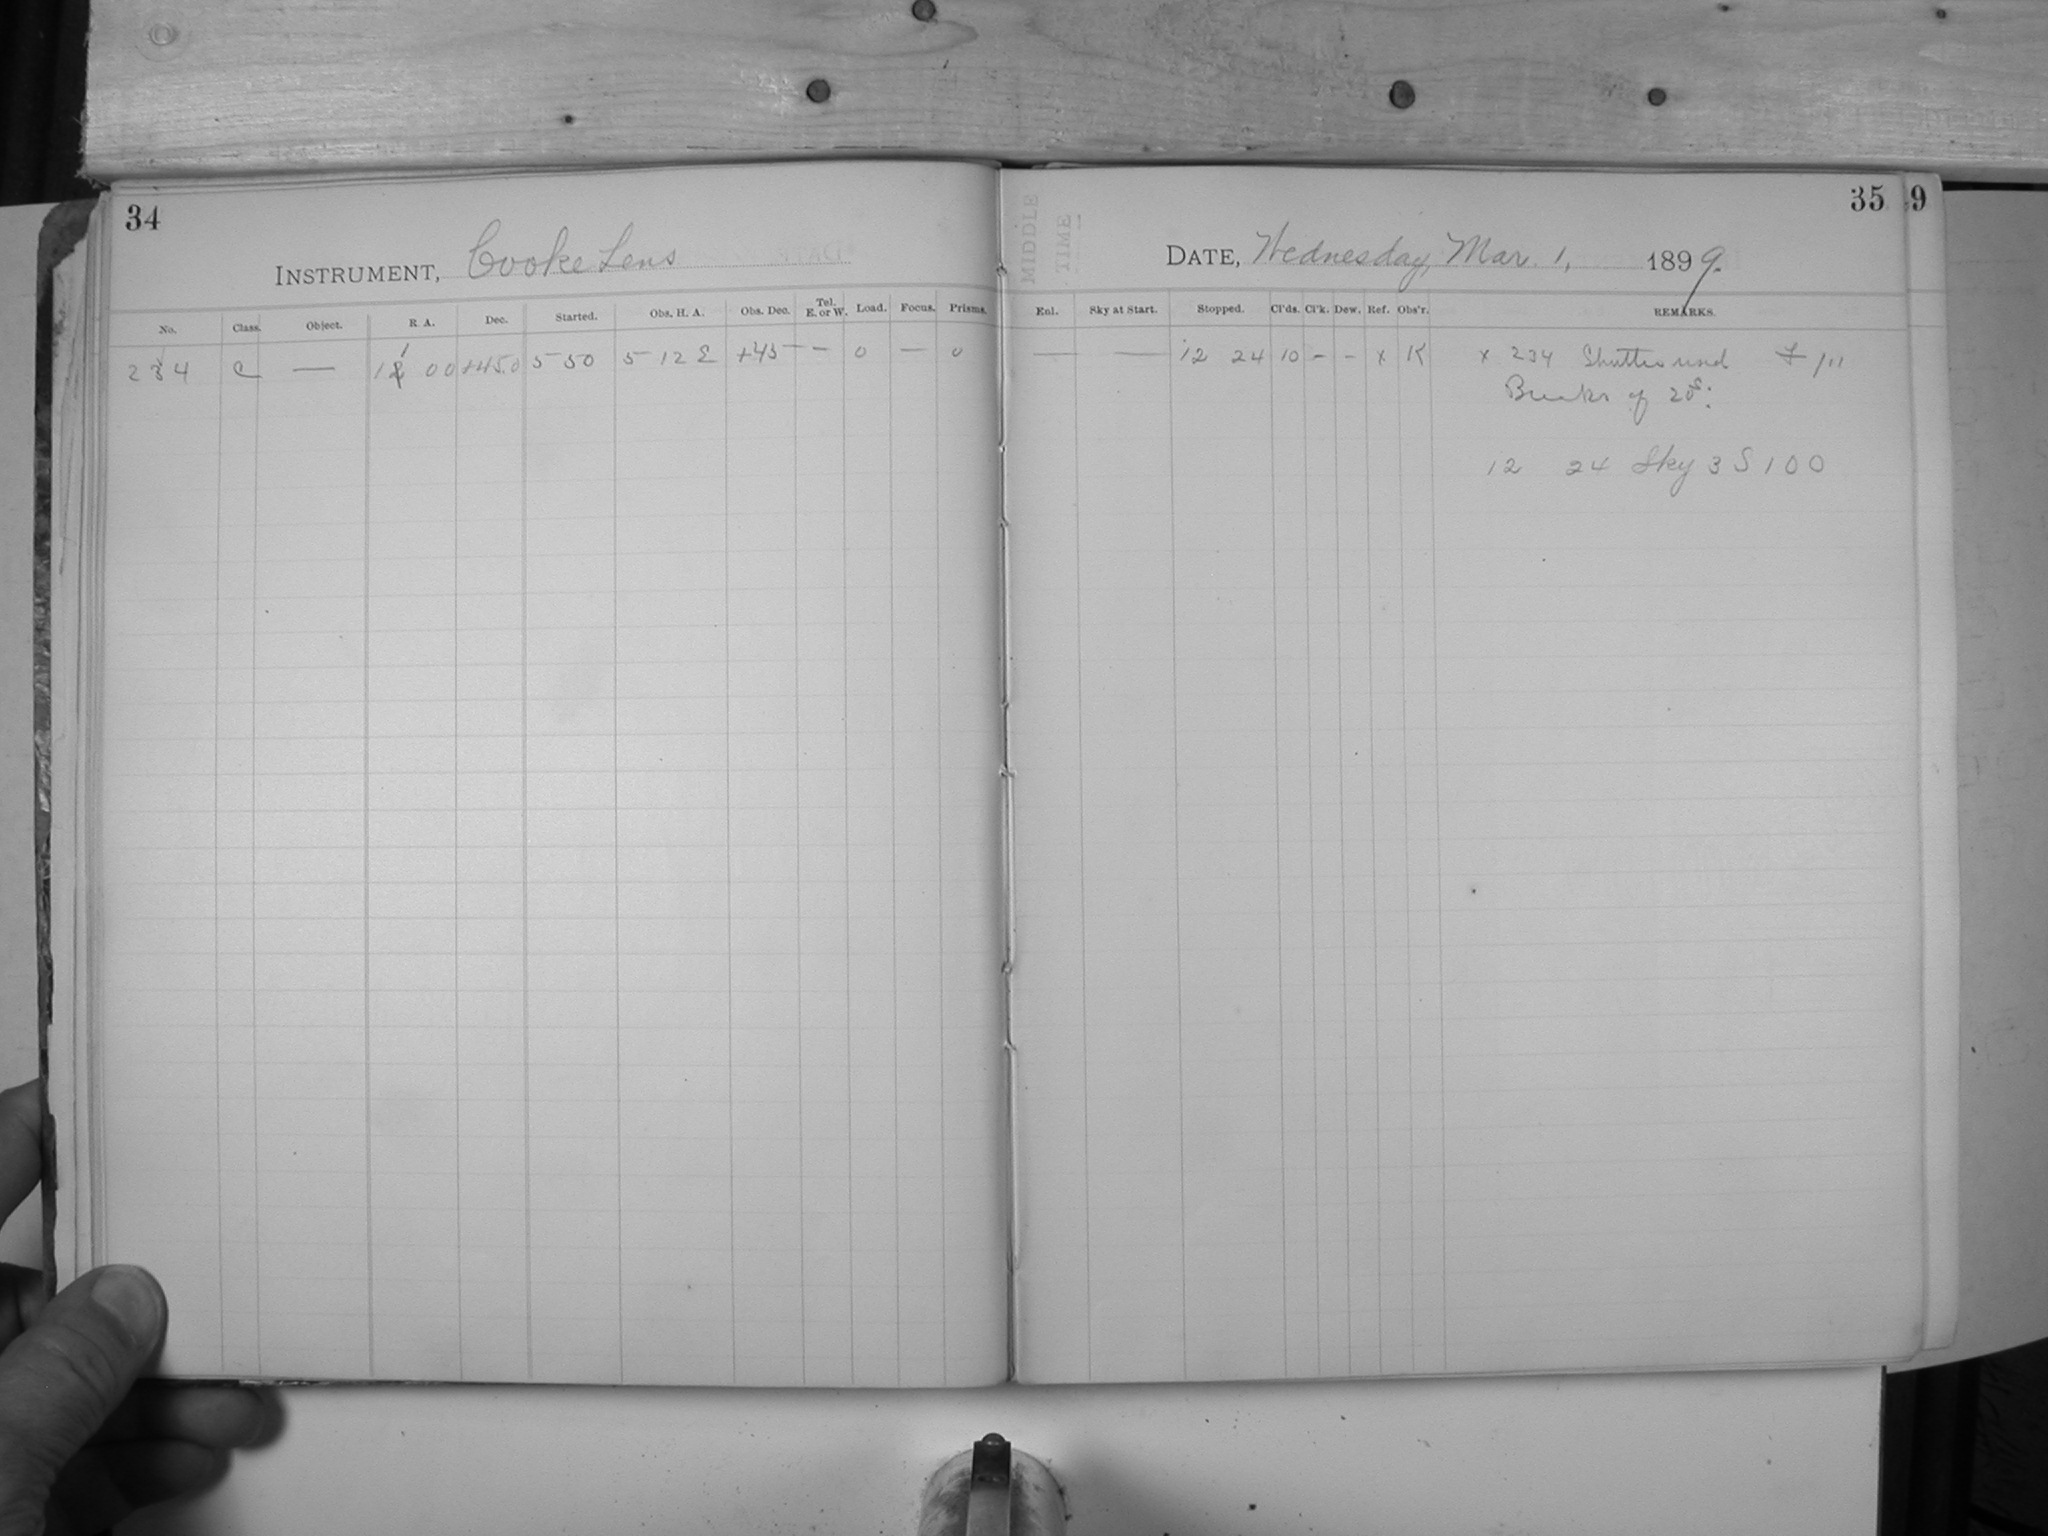 34
INSTRUMENT, Cooke Lens
No. Class. Object. R. A. Dec. Started. Obs. H. A. Obs. Dec. Tel. E. or W. Load. Focus. Prisms.
234 C — 11 00 +45.0 5 50 5 12 E +45 — — 0 — 0
MIDDLE
TIME
35
9
DATE, Wednesday, Mar. 1, 1899.
Enl. Sky at Start. Stopped. Cl'ds. Cl'k. Dew. Ref. Obs'r. REMARKS.
— — 12 24 10 - - x K x 234 Shutter used
Breaks of 20s.
12 24 Sky 3 S 100